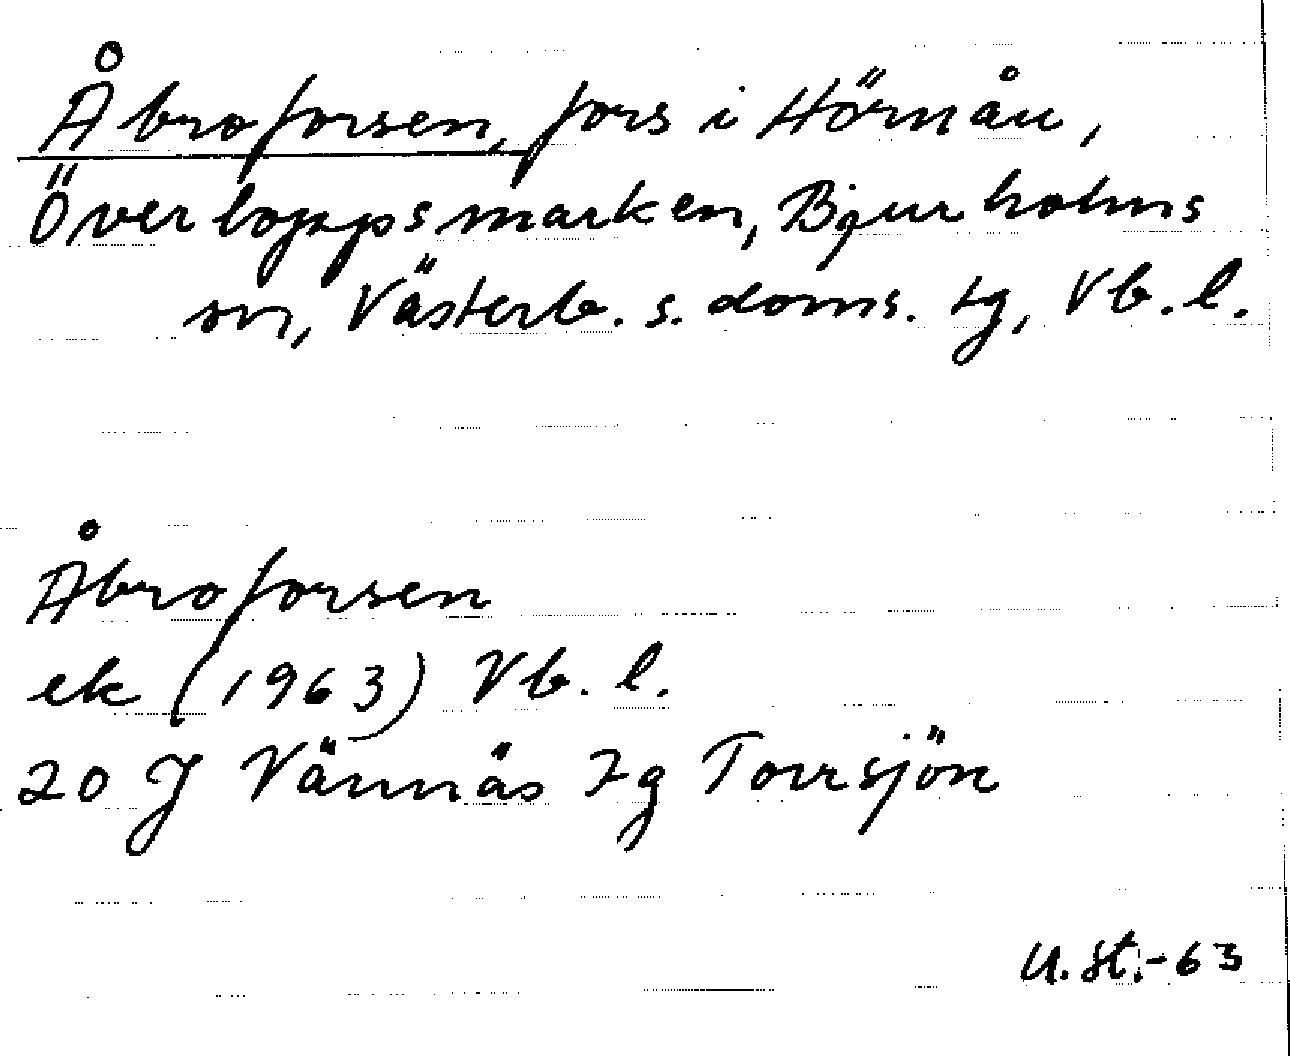 Åbroforsen, fors i Hörnån,
Överloppsmarken, Bjurholms
sn, Västerb. s. doms. tg, Vb. l.
Åbroforsen
ek (1963) Vb. l.
20 J Vännäs 7g Torrsjön
U. St.-63